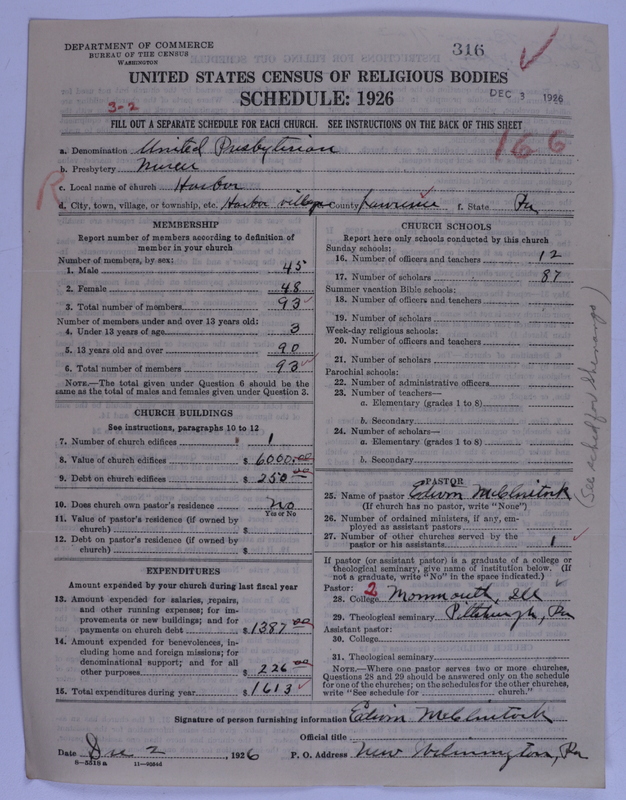 DEPARTMENT OF COMMERCE
BUREAU OF THE CENSUS
WASHINGTON
316
UNITED STATES CENSUS OF RELIGIOUS BODIES
SCHEDULE: 1926
DEC 3 1926
3-2
FILL OUT A SEPARATE SCHEDULE FOR EACH CHURCH. SEE INSTRUCTIONS ON THE BACK OF THIS SHEET
166
a. Denomination United Presbyterian
b. Presbytery Mercer
c. Local name of church Harbor
R
d. City, town, village, or township, etc. Harbor village County Lawrence f. State Pa
MEMBERSHIP
Report number of members according to definition of
member in your church
Number of members, by sex:
1. Male 45
2. Female 48
3. Total number of members 93
Number of members under and over 13 years old:
4. Under 13 years of age 3
5. 13 years old and over 90
6. Total number of members 93
NOTE.—The total given under Question 6 should be the
same as the total of males and females given under Question 3.
CHURCH BUILDINGS
See instructions, paragraphs 10 to 12
7. Number of church edifices 1
8. Value of church edifices $ 6000.00
9. Debt on church edifices $ 250 00
10. Does church own pastor's residence No
Yes or No
11. Value of pastor's residence (if owned by
church) $
12. Debt on pastor's residence (if owned by
church) $
EXPENDITURES
Amount expended by your church during last fiscal year
13. Amount expended for salaries, repairs,
and other running expenses; for im-
provements or new buildings; and for
payments on church debt $ 1387 00
14. Amount expended for benevolences, in-
cluding home and foreign missions; for
denominational support; and for all
other purposes $ 226 00
15. Total expenditures during year $ 1613
CHURCH SCHOOLS
Report here only schools conducted by this church
Sunday schools:
16. Number of officers and teachers 12
17. Number of scholars 87
Summer vacation Bible schools:
18. Number of officers and teachers
19. Number of scholars
Week-day religious schools:
20. Number of officers and teachers
21. Number of scholars
Parochial schools:
22. Number of administrative officers
23. Number of teachers—
a. Elementary (grades 1 to 8)
b. Secondary
24. Number of scholars—
a. Elementary (grades 1 to 8)
b. Secondary
(See sched for Shenango)
PASTOR
25. Name of pastor Edwin McClintock
(If church has no pastor, write "None")
26. Number of ordained ministers, if any, em-
ployed as assistant pastors
27. Number of other churches served by the
pastor or his assistants 1
If pastor (or assistant pastor) is a graduate of a college or
theological seminary, give name of institution below. (If
not a graduate, write "No" in the space indicated.)
Pastor: 2
28. College Monmouth, Ill
29. Theological seminary Pittsburgh, Pa
Assistant pastor:
30. College
31. Theological seminary
NOTE.—Where one pastor serves two or more churches,
Questions 28 and 29 should be answered only on the schedule
for one of the churches; on the schedules for the other churches,
write "See schedule for church."
Signature of person furnishing information Edwin McClintock
Official title
Date Dec 2, 1926 P. O. Address New Wilmington, Pa
8-5518a 11-9054d